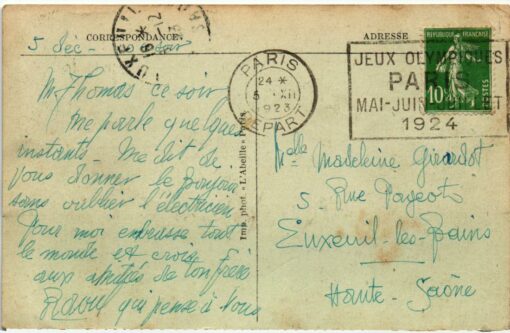 CORRESPONDANCE
ADRESSE
5 déc - ce soir
M. Thomas ce soir
me parle quelques
instants. Me dit de
vous donner le bonjour
sans oublier l'électricien
Pour moi embrasse tout
le monde et crois
aux amitiés de ton frère
Raoul qui pense à vous
Imp. phot. «L'Abeille» Paris
PARIS
24 *
5 XII
1923
DEPART
JEUX OLYMPIQUES
PARIS
MAI-JUIN
1924
10
Melle Madeleine Girardot
5 Rue Pageot
Luxeuil-les-Bains
Haute-Saône